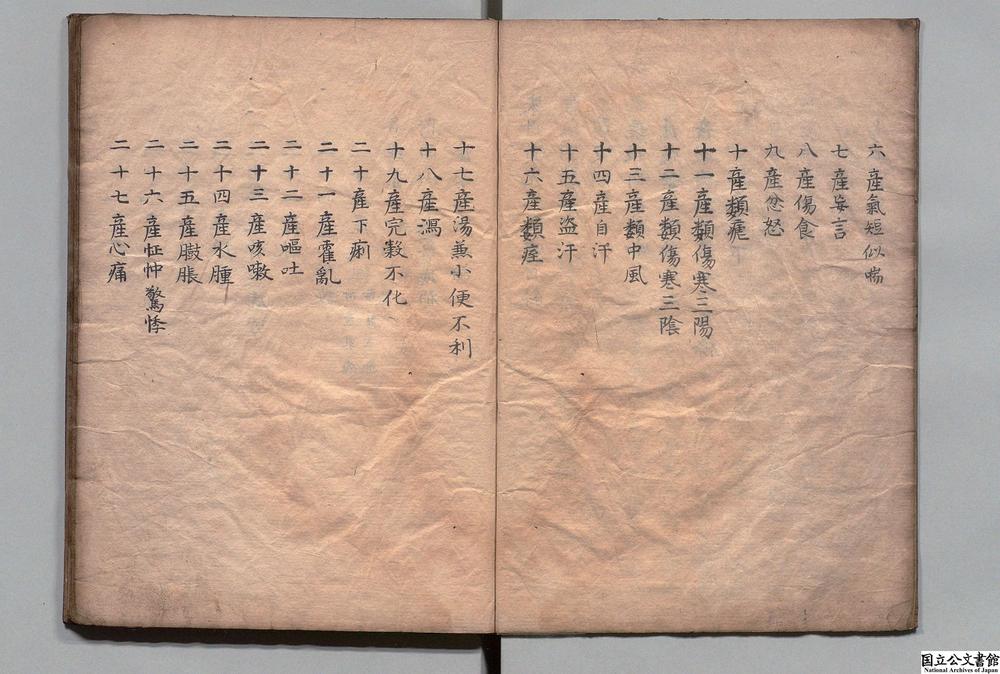 六產氣短似喘
七產妄言
八產傷食
九產忿怒
十產類瘧
十一產類傷寒三陽
十二產類傷寒三陰
十三產類中風
十四產自汗
十五產盜汗
十六產類痙
十七產湯兼小便不利
十八產瀉
十九產完穀不化
二十產下痢
二十一產霍亂
二十二產嘔吐
二十三產咳嗽
二十四產水腫
二十五產臌脹
二十六產怔忡驚悸
二十七產心痛
国立公文書館
National Archives of Japan